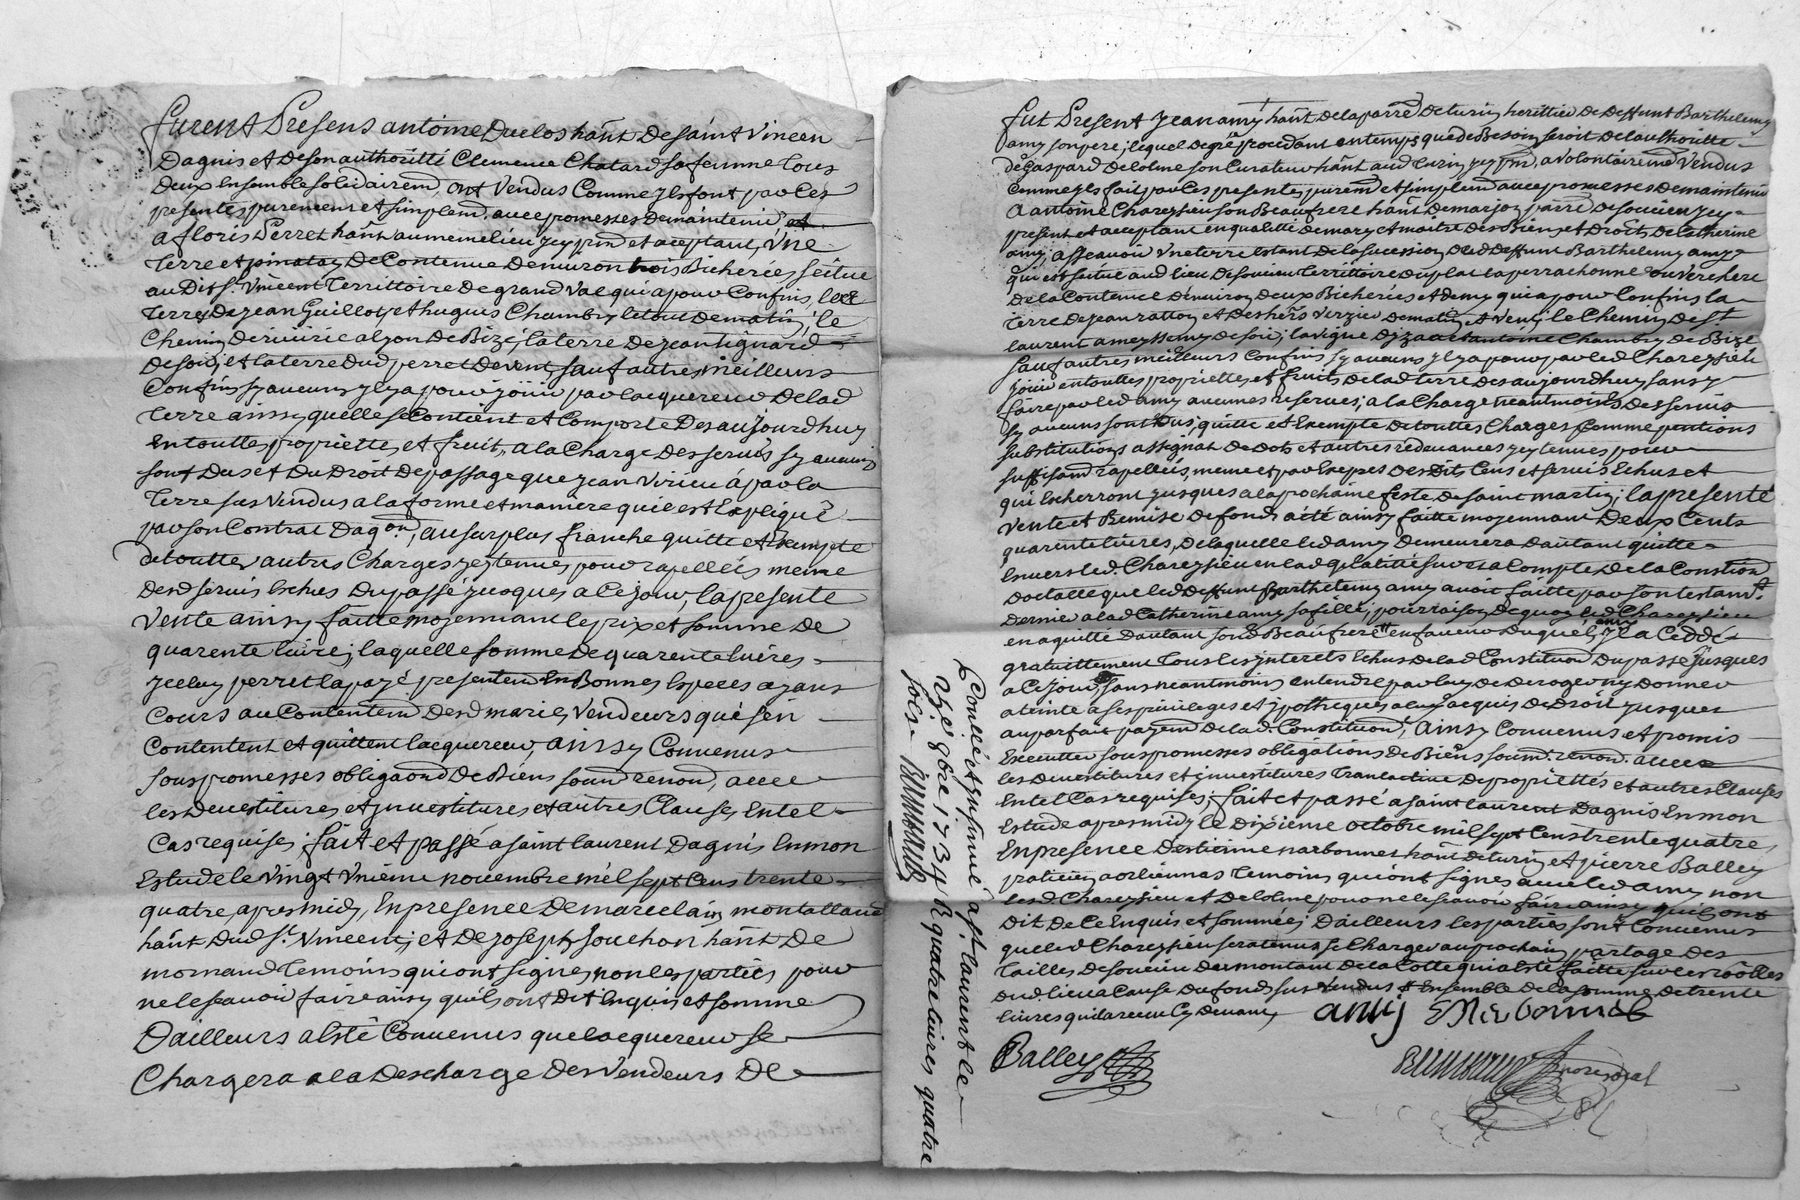 furent Presens antoine Duclos hãnt De saint Vincen
Dagnis et De son authoritté Clemence Chatard sa femme tous
Deux Ensemble solidairem̃ ont Vendus Comme jls font par les
presentes purement et simplem̃ avec promesses De maintenir et
a floris Perret hãnt au meme lieu jcy pñt et aceptant, Vne
Terre et pinatay De Contenue Denuiron trois Bicherées seitue
au Dit St. Vincent Territtoire De grand Val qui a pour Confins, les
Terres De jean Guillot et hugues Chambry le tout De matin, le
Chemin De riuirie a lyon De Bize, la terre De jean tignard
De soir, et la terre Dud perret De vent, sauf autres meilleurs
Confins sy aucuns jl y a pour joüir par lacquereur De lad
Terre ainsy quelle se Contient et Comporte Des aujourdhuy
En toutte propriette et fruit, a la Charge Des seruis sy aucuns
sont Dus et Du Droit De passage que jean Virieu á par la
Terre sus Vendus a la forme et maniere quil est Expliqué
par son Contrat Daqon, au surplus franche quitte et Exempte
de touttes autres Charges jcy tenues pour rapellées meme
Desd seruis Eschus Du passé jusques a Ce jour, la presente
Vente ainsy faitte moyennant le prix et somme De
quarente liures, laquelle somme De quarente liures
jceluy perret la payé presentem̃ En Bonnes Especes ayans
Cours au Contentem̃ Desd mariés Vendeurs qui sen
Contentent et quittent lacquereur, ainsy Conuenus
sous promesses obligãons De Biens soum̃ renon̄, auec
les Deuestitures et jnuestitures et autres Clauses En tel
Cas requises, fait et passé a saint laurent Dagnis En mon
Estude le Vingt Vnieme nouembre mil sept Cens trente
quatre, apres midy, En presence De marcelain montalland
hãnt Dud St. Vincent, et De joseph souchon hãnt De
mornand temoins qui ont signes non les parties pour
ne le scauoir faire ainsy quils ont Dit Enquis et somme
Dailleurs a Esté Conuenus que lacquereur se
Chargera a la Descharge Des Vendeurs De
fut Present jean amy hãnt de la parre De turin herittier De Deffunt Barthelemy
amy son pere, lequel De gré procedant en temps que De Besoin seroit De lauthoritte
De gaspard Delolme son Curateur hãnt aud turin jcy pñt, a Volontairem̃ Vendus
Comme jl fait par les presentes purem̃ et simplem̃ auec promesses De maintenir
A antoine Chareysieu son Beaufrere hãnt De marjon parre De soucieu jcy
present et acceptant en qualitte De mary et maitre Des Biens et Droits De Catherine
amy, assauoir Vne terre Estant De la sucession Dud Deffunt Barthelemy amy
qui est seitue aud lieu De soucieu territtoire Du plat La perrachonne ou Verchere
De la Contenue Denuiron Deux Bicherées et Demy qui a pour Confins la
Terre De jean ratton et Des hers Verzieu De matin et Vent, le Chemin De St
laurent a meyssemy De soir, la vigne Dyzaac et antoine Chambry De Bize
sauf autres meilleurs Confins sy aucuns jl y a pour par led Chareysieu
joüir en touttes propriettes et fruits De lad terre Des aujourdhuy sans y
faire par led amy aucunes reserues, a la Charge neantmoins Des seruis
sy aucuns sont Dus, quitte et Exempte De touttes Charges Comme pentions
substitutions assignat De Dots et autres redeuances jcy tenues pour
suffisam̃ rapellées, meme et par Exprés Des Dit Cens et seruis Echus et
qui Echerront jusques a la prochaine feste De saint martin, la presente
Vente et Remise De fond a eté ainsy faitte moyennant Deux Cents
quarente liures, De laquelle led amy Demeurera Dautant quitte
Enuers led. Chareysieu en lad qualitté sur et a Compte De la Constion
Dotalle que led Deffunt Barthelemy amy auoit faitte par son testamt.
Dernier a lad Catherine amy sa fille, pour raison De quoy led Chareysieu
en a quitté Dautant sond Beaufrere en faueur Duquel, jl a Cedde
gratuittement tous les jnterets Echus De lad Constitution Du passé jusques
a Ce jour, sans neantmoins entendre par luy De Deroger ny Donner
ateinte a ses priuileges et ypotheques a luy acquis De Droit jusques
au parfait payem̃ De lad. Constitution, Ainsy Conuenus et promis
Executter sous promesses obligations De Biens soum̃. renon̄. auec
les Deuestitures et jnuestitures translatiue De propriettés et autres Clauses
En tel Cas requises, fait et passé a saint laurent Dagnis En mon
Estude apres midy le Dixieme octobre mil sept Cens trente quatre,
En presence Destienne narbonnet hãnt De turin et pierre Balley
praticien a orliennas temoins qui ont signés auec led amy non
lesd Chareysieu et Delolme pour ne le scauoir faire ainsy quils ont
Dit De Ce Enquis et sommés, Dailleurs les parties sont Conuenus
que led Chareysieu sera tenus se Charger au prochain partage Des
Tailles De soucieu Du montant De la Cotte qui a Esté faitte sur les roolles
Dud. lieu a Cause Du fond sus Vendus et Ensemble De la somme De trente
liures quil a receu Cy Deuant
amy ENarbonnet
Balley
Controllé et jnsinué a St laurent le
23e 9bre 1734 R quatre liures quatre
sols